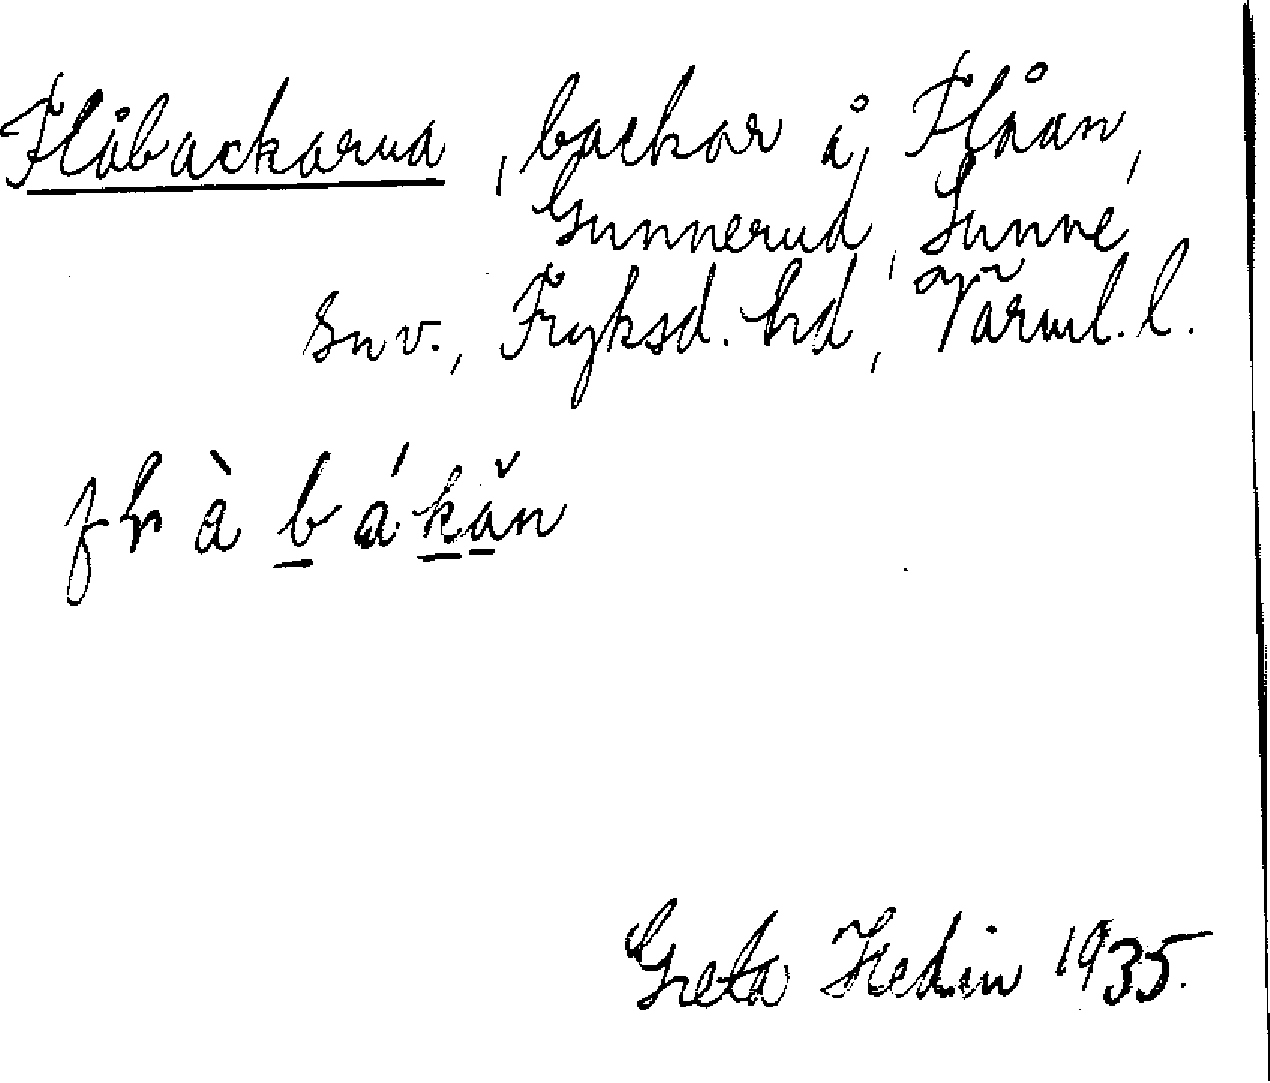 Flåbackarna, backar å Flåan,
Gunnerud, Sunne
snv., Fryksd. hd, Värml. l.
Greta Hedin 1935.